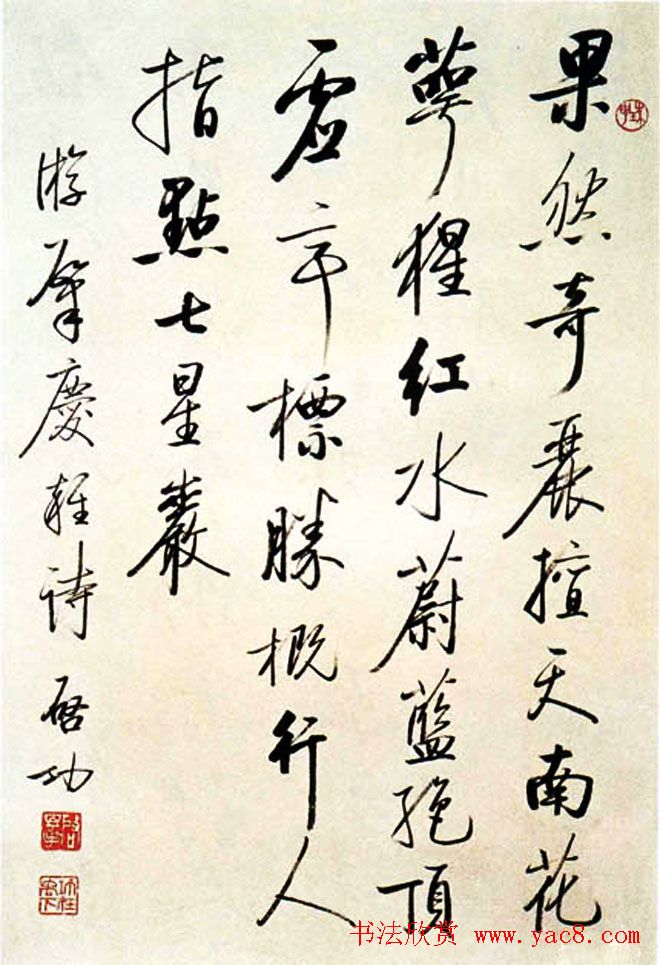 果然奇麗擅天南花
萼猩红水蔚藍絶頂
虚亭標勝概行人
指點七星巖
游肇慶雜詩 啓功
书法欣赏 www.yac8.com